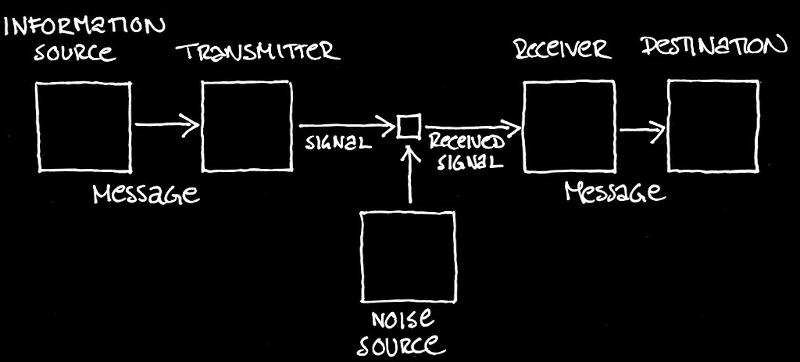 INFORMATION
SOURCE
TRANSMITTER
RECEIVER
DESTINATION
SIGNAL
RECEIVED
SIGNAL
MESSAGE
MESSAGE
NOISE
SOURCE